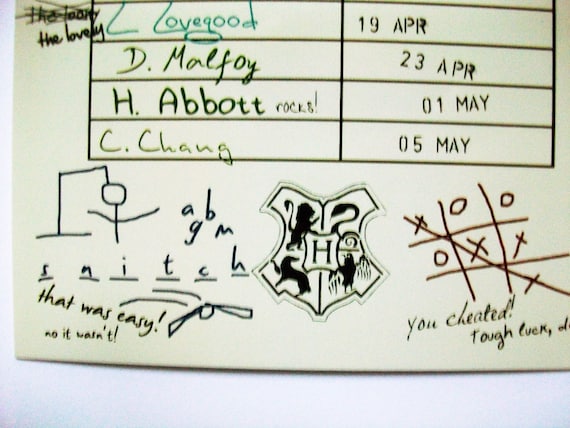 the loony
the lovely
L Lovegood 19 APR
D. Malfoy 23 APR
H. Abbott rocks! 01 MAY
C. Chang 05 MAY
a b
g m
s n i t c h
H
O O
X
O X X
X
that was easy!
no it wasn't!
you cheated!
Tough luck,